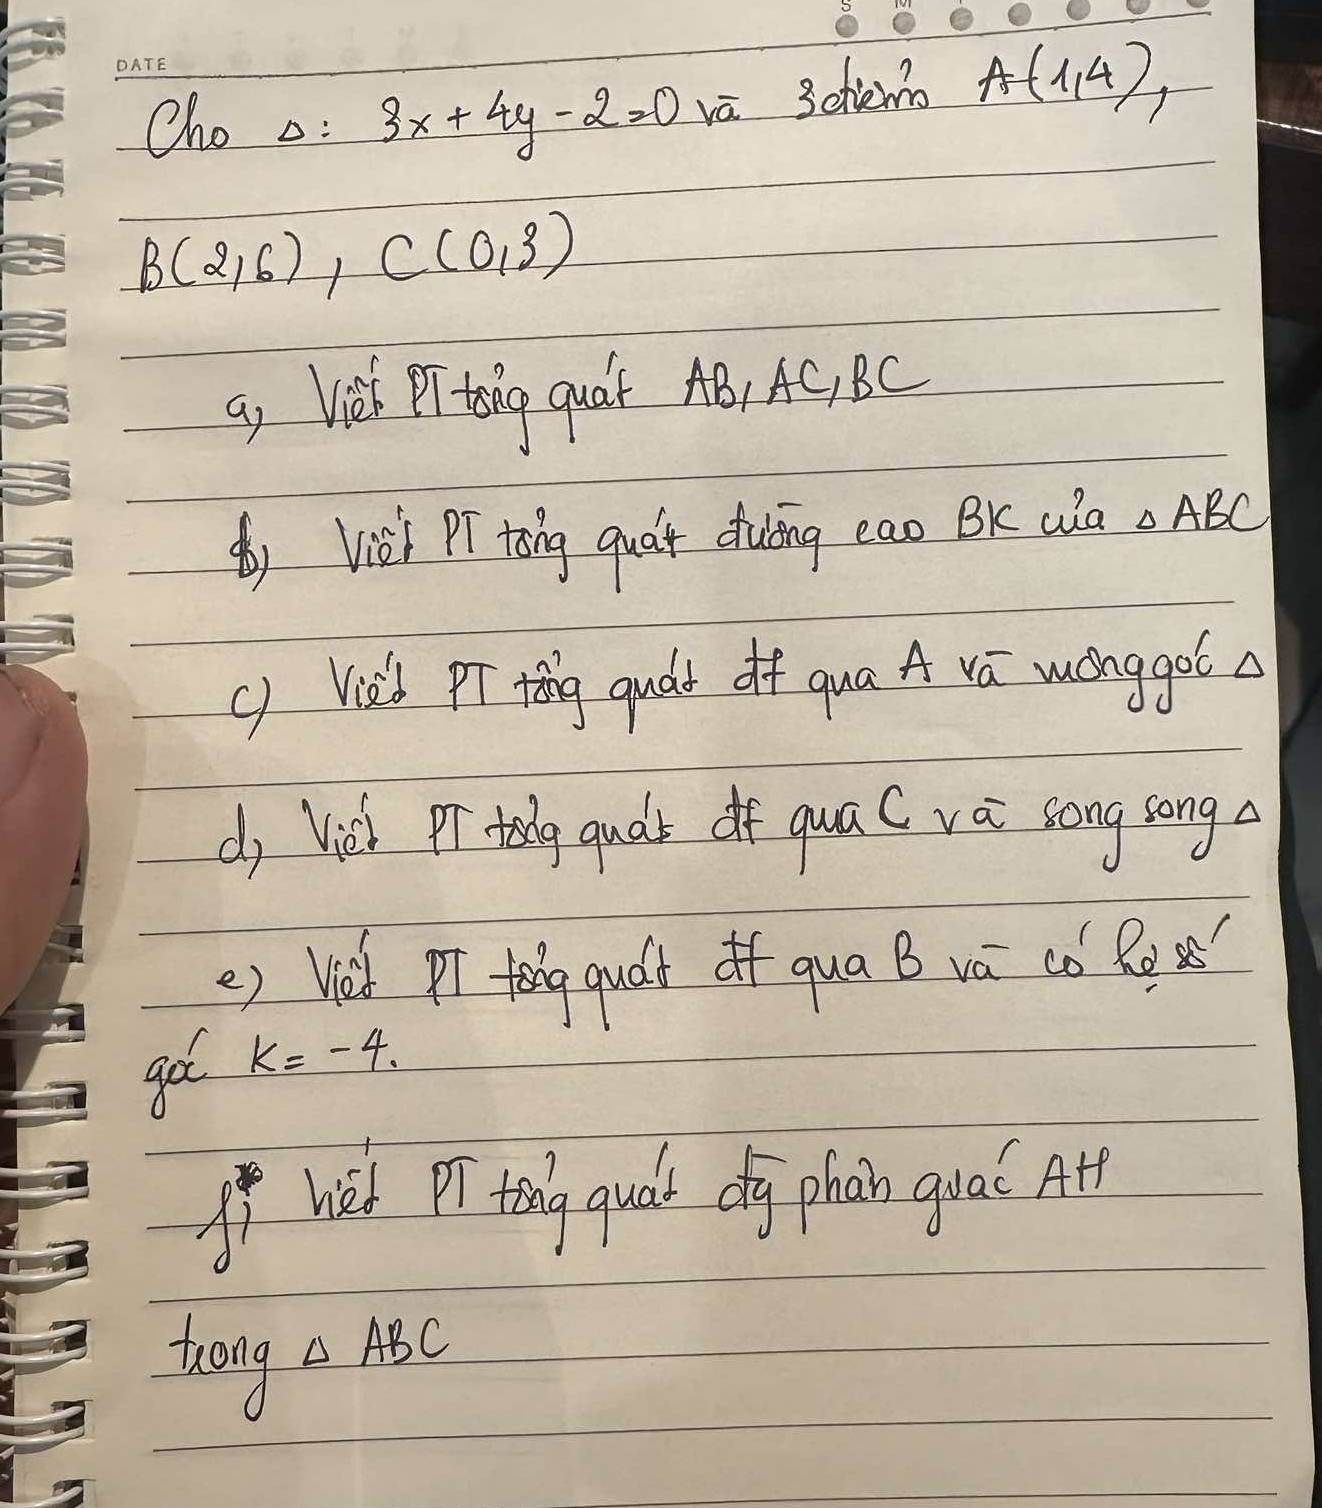 S M
DATE
Cho Δ: 3x + 4y - 2 = 0 và 3 điểm A(1,4),
B(2,6), C(0,3)
a, Viết PT tổng quát AB, AC, BC
b, Viết PT tổng quát đường cao BK của Δ ABC
c) Viết PT tổng quát đt qua A và vuông góc Δ
d, Viết PT tổng quát đt qua C và song song Δ
e) Viết PT tổng quát đt qua B và có hệ số
góc k = -4.
f, Viết PT tổng quát đg phân giác AH
trong Δ ABC